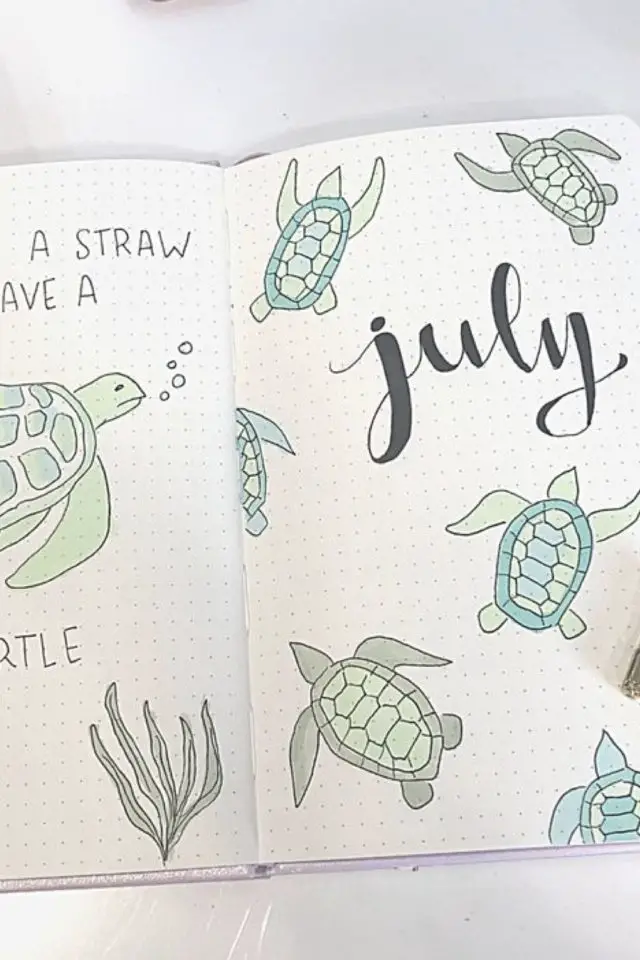 A STRAW
AVE A
RTLE
july